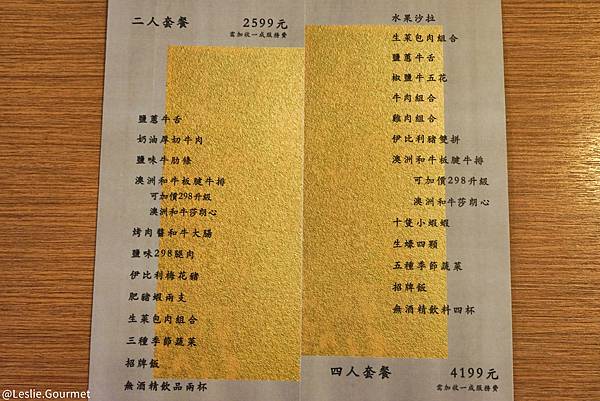 二人套餐 2599元
需加收一成服務費
鹽蔥牛舌
奶油厚切牛肉
鹽味牛肋條
澳洲和牛板腱牛排
可加價298升級
澳洲和牛莎朗心
烤肉醬和牛大腸
鹽味298腿肉
伊比利梅花豬
肥豬蝦兩支
生菜包肉組合
三種季節蔬菜
招牌飯
無酒精飲品兩杯
水果沙拉
生菜包肉組合
鹽蔥牛舌
椒鹽牛五花
牛肉組合
雞肉組合
伊比利豬雙拼
澳洲和牛板腱牛排
可加價298升級
澳洲和牛莎朗心
十隻小蝦蝦
生蠔四顆
五種季節蔬菜
招牌飯
無酒精飲料四杯
四人套餐 4199元
需加收一成服務費
@Leslie.Gourmet